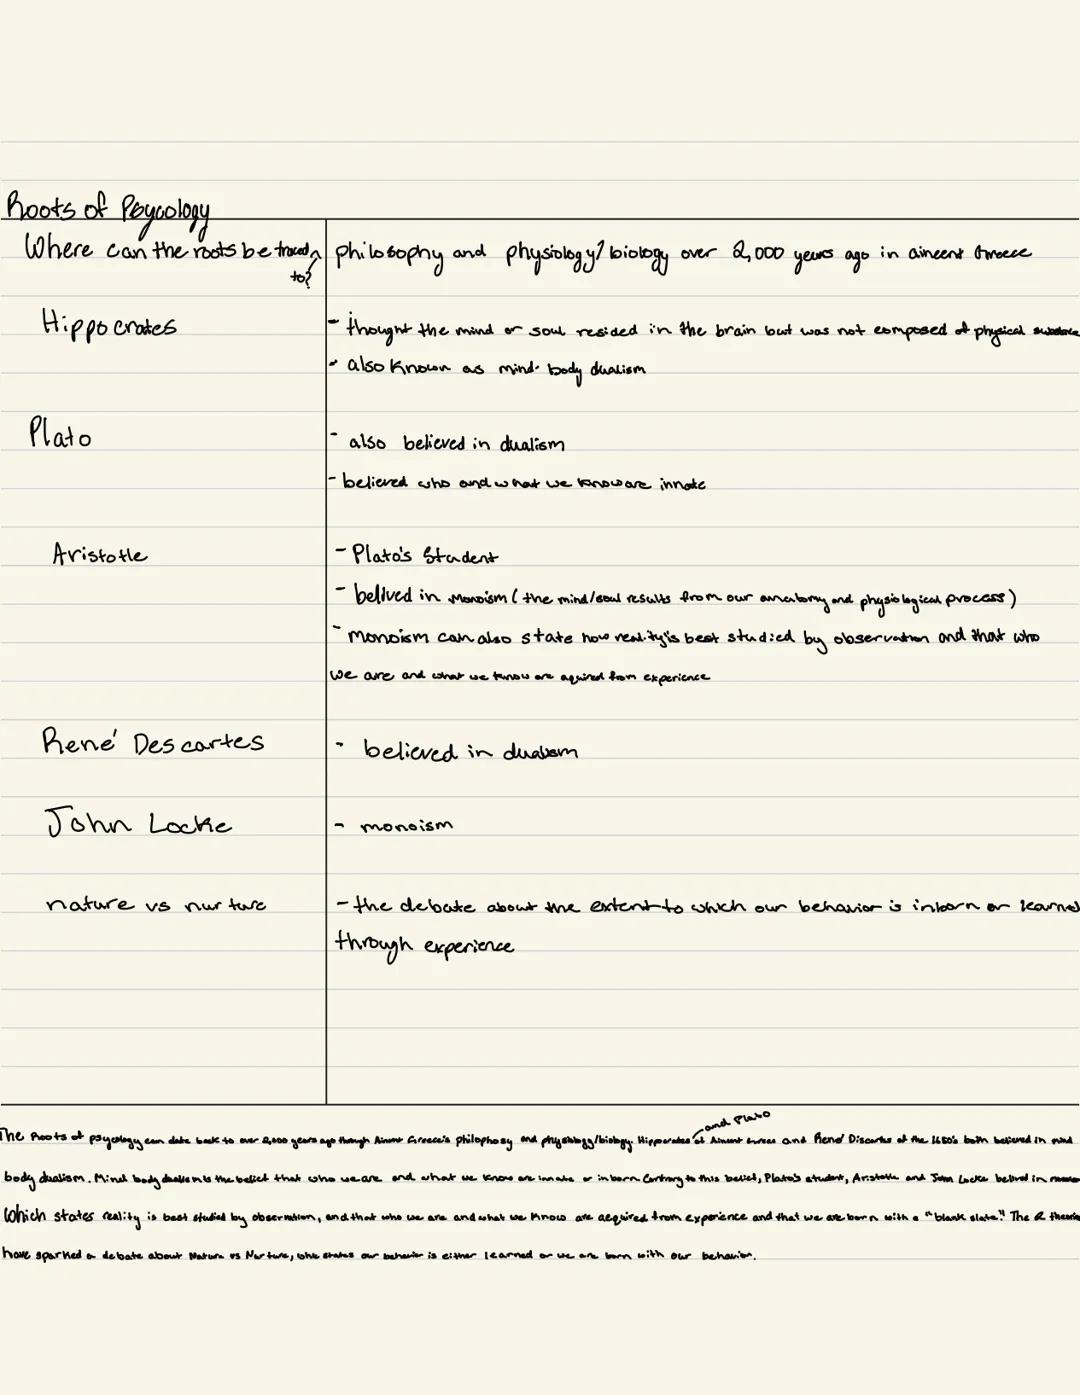 Roots of Psycology
Where can the roots be traced to?
philosophy and physiology/biology over 2,000 years ago in aincent Greece
Hippocrates
- thought the mind or soul resided in the brain but was not composed of physical substance
- also known as mind-body dualism
Plato
- also believed in dualism
- believed who and what we know are innate
Aristotle
- Plato's Student
- belived in monoism (the mind/soul results from our anatomy and physiological process)
- monoism can also state how reality is best studied by observation and that who
we are and what we know are aquired from experience
René Descartes
- believed in dualism
John Locke
- monoism
nature vs nurture
- the debate about the extent to which our behavior is inborn or learned
through experience
and Plato
The Roots of psycology can date back to over 2,000 years ago through Greece's philophosy and physiology/biology. Hippocrates of and René Discartes of the 1650's both believed in mind
body dualism. Mind body dualism is the belief that who we are and what we know are innate or inborn. Contrary to this belief, Plato's student, Aristotle and John Locke belived in
which states reality is best studied by observation, and that who we are and what we know are aequired from experience and that we are born with a "blank slate." The 2
have sparked a debate about Nature vs Nurture, states our behavior is either learned or we are born with our behavior.